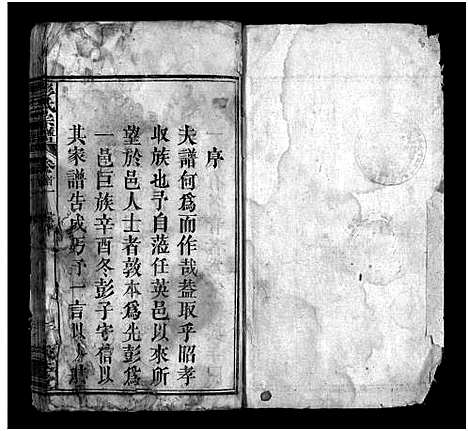 序
夫譜何爲而作哉蓋取乎昭孝
收族也予自蒞任英邑以來所
望於邑人士者敦本爲先彭爲
一邑巨族辛酉冬彭子守信以
其家譜告成丐予一言以
彭氏宗譜